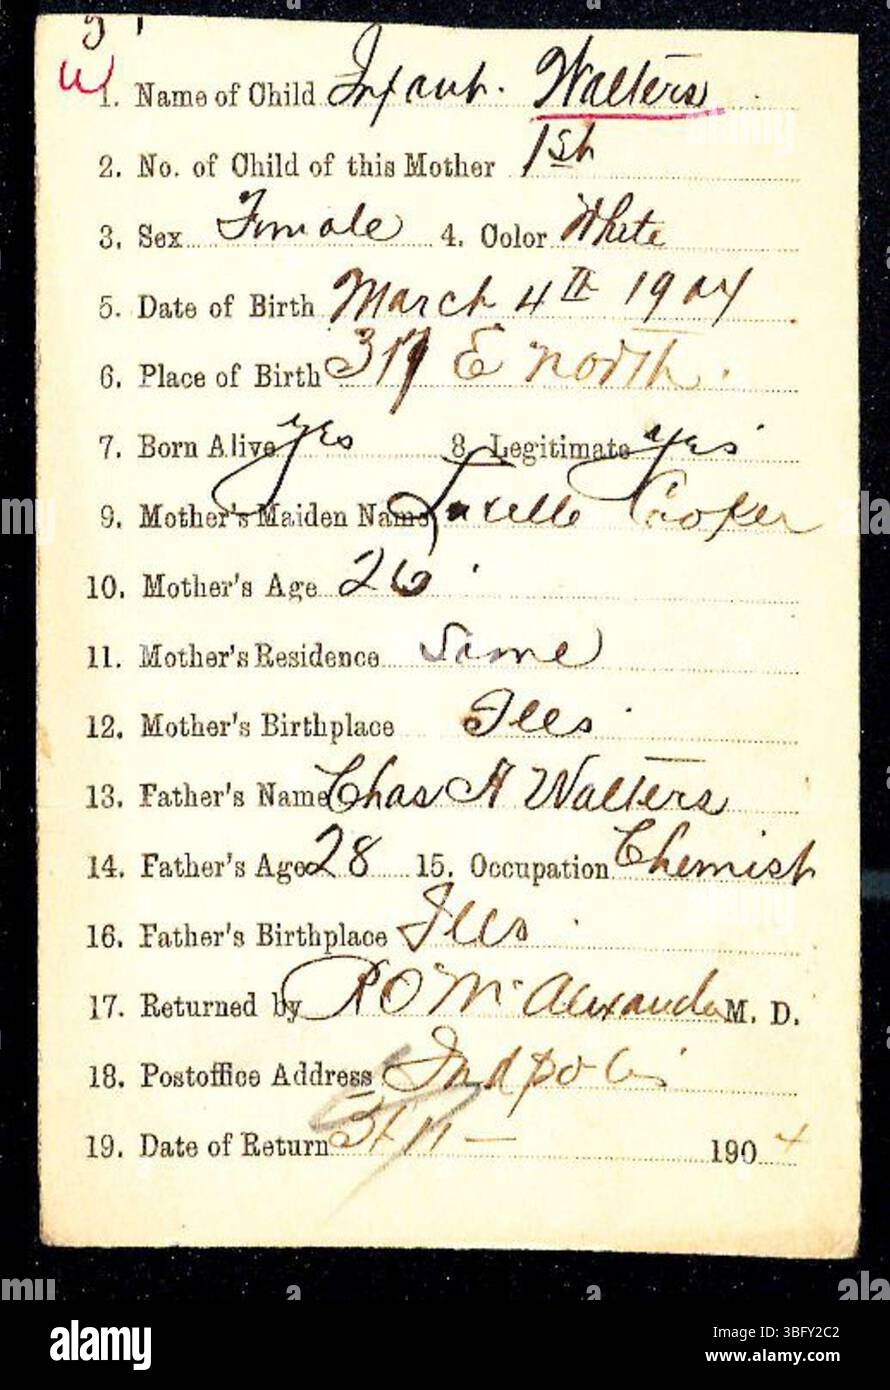 W
1. Name of Child Infant. Walters
2. No. of Child of this Mother 1st
3. Sex Female 4. Color White
5. Date of Birth March 4th 1904
6. Place of Birth 319 E North.
7. Born Alive yes 8. Legitimate yes
9. Mother's Maiden Name Cooper
10. Mother's Age 26
11. Mother's Residence Same
12. Mother's Birthplace Ills.
13. Father's Name Chas H Walters
14. Father's Age 28 15. Occupation Chemist
16. Father's Birthplace Ills.
17. Returned by R O Mc Alexander M. D.
18. Postoffice Address Indpolis
19. Date of Return 1904
alamy
Image ID: 3BFY2C2
www.alamy.com